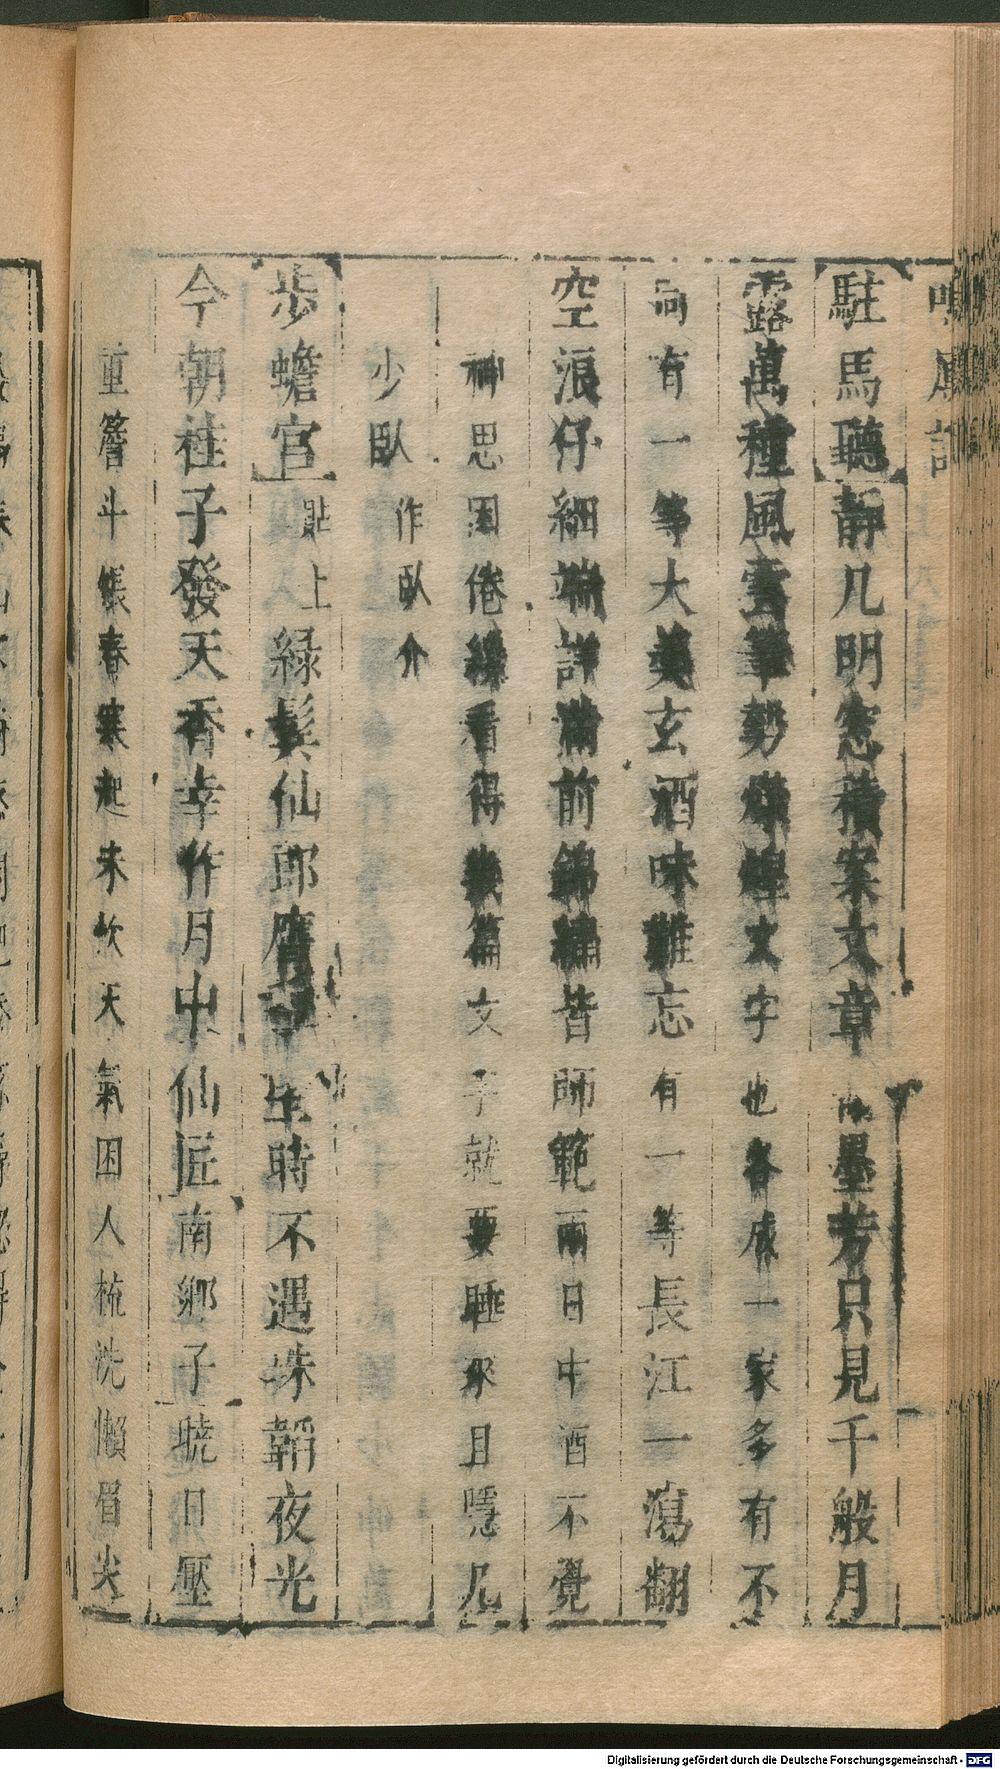 鳴鳳記
駐馬聽靜几明窻積案文章 墨芳只見千般月
露萬種風雲筆勢煇煌文字也各成一家多有不
同有一等大羮玄酒味難忘有一等長江一瀉翻
空浪仔細端詳滿前錦繡皆師範兩日中酒不覺
神思困倦纔看得數篇文字就要睡來且隱几
少臥作臥介
步蟾宮貼上綠鬂仙郎膺 生時不遇珠韜夜光
今朝桂子發天香幸作月中仙匠南鄉子曉日壓
重簷斗帳春寒起未忺天氣困人梳洗懶眉尖
Digitalisierung gefördert durch die Deutsche Forschungsgemeinschaft - DFG